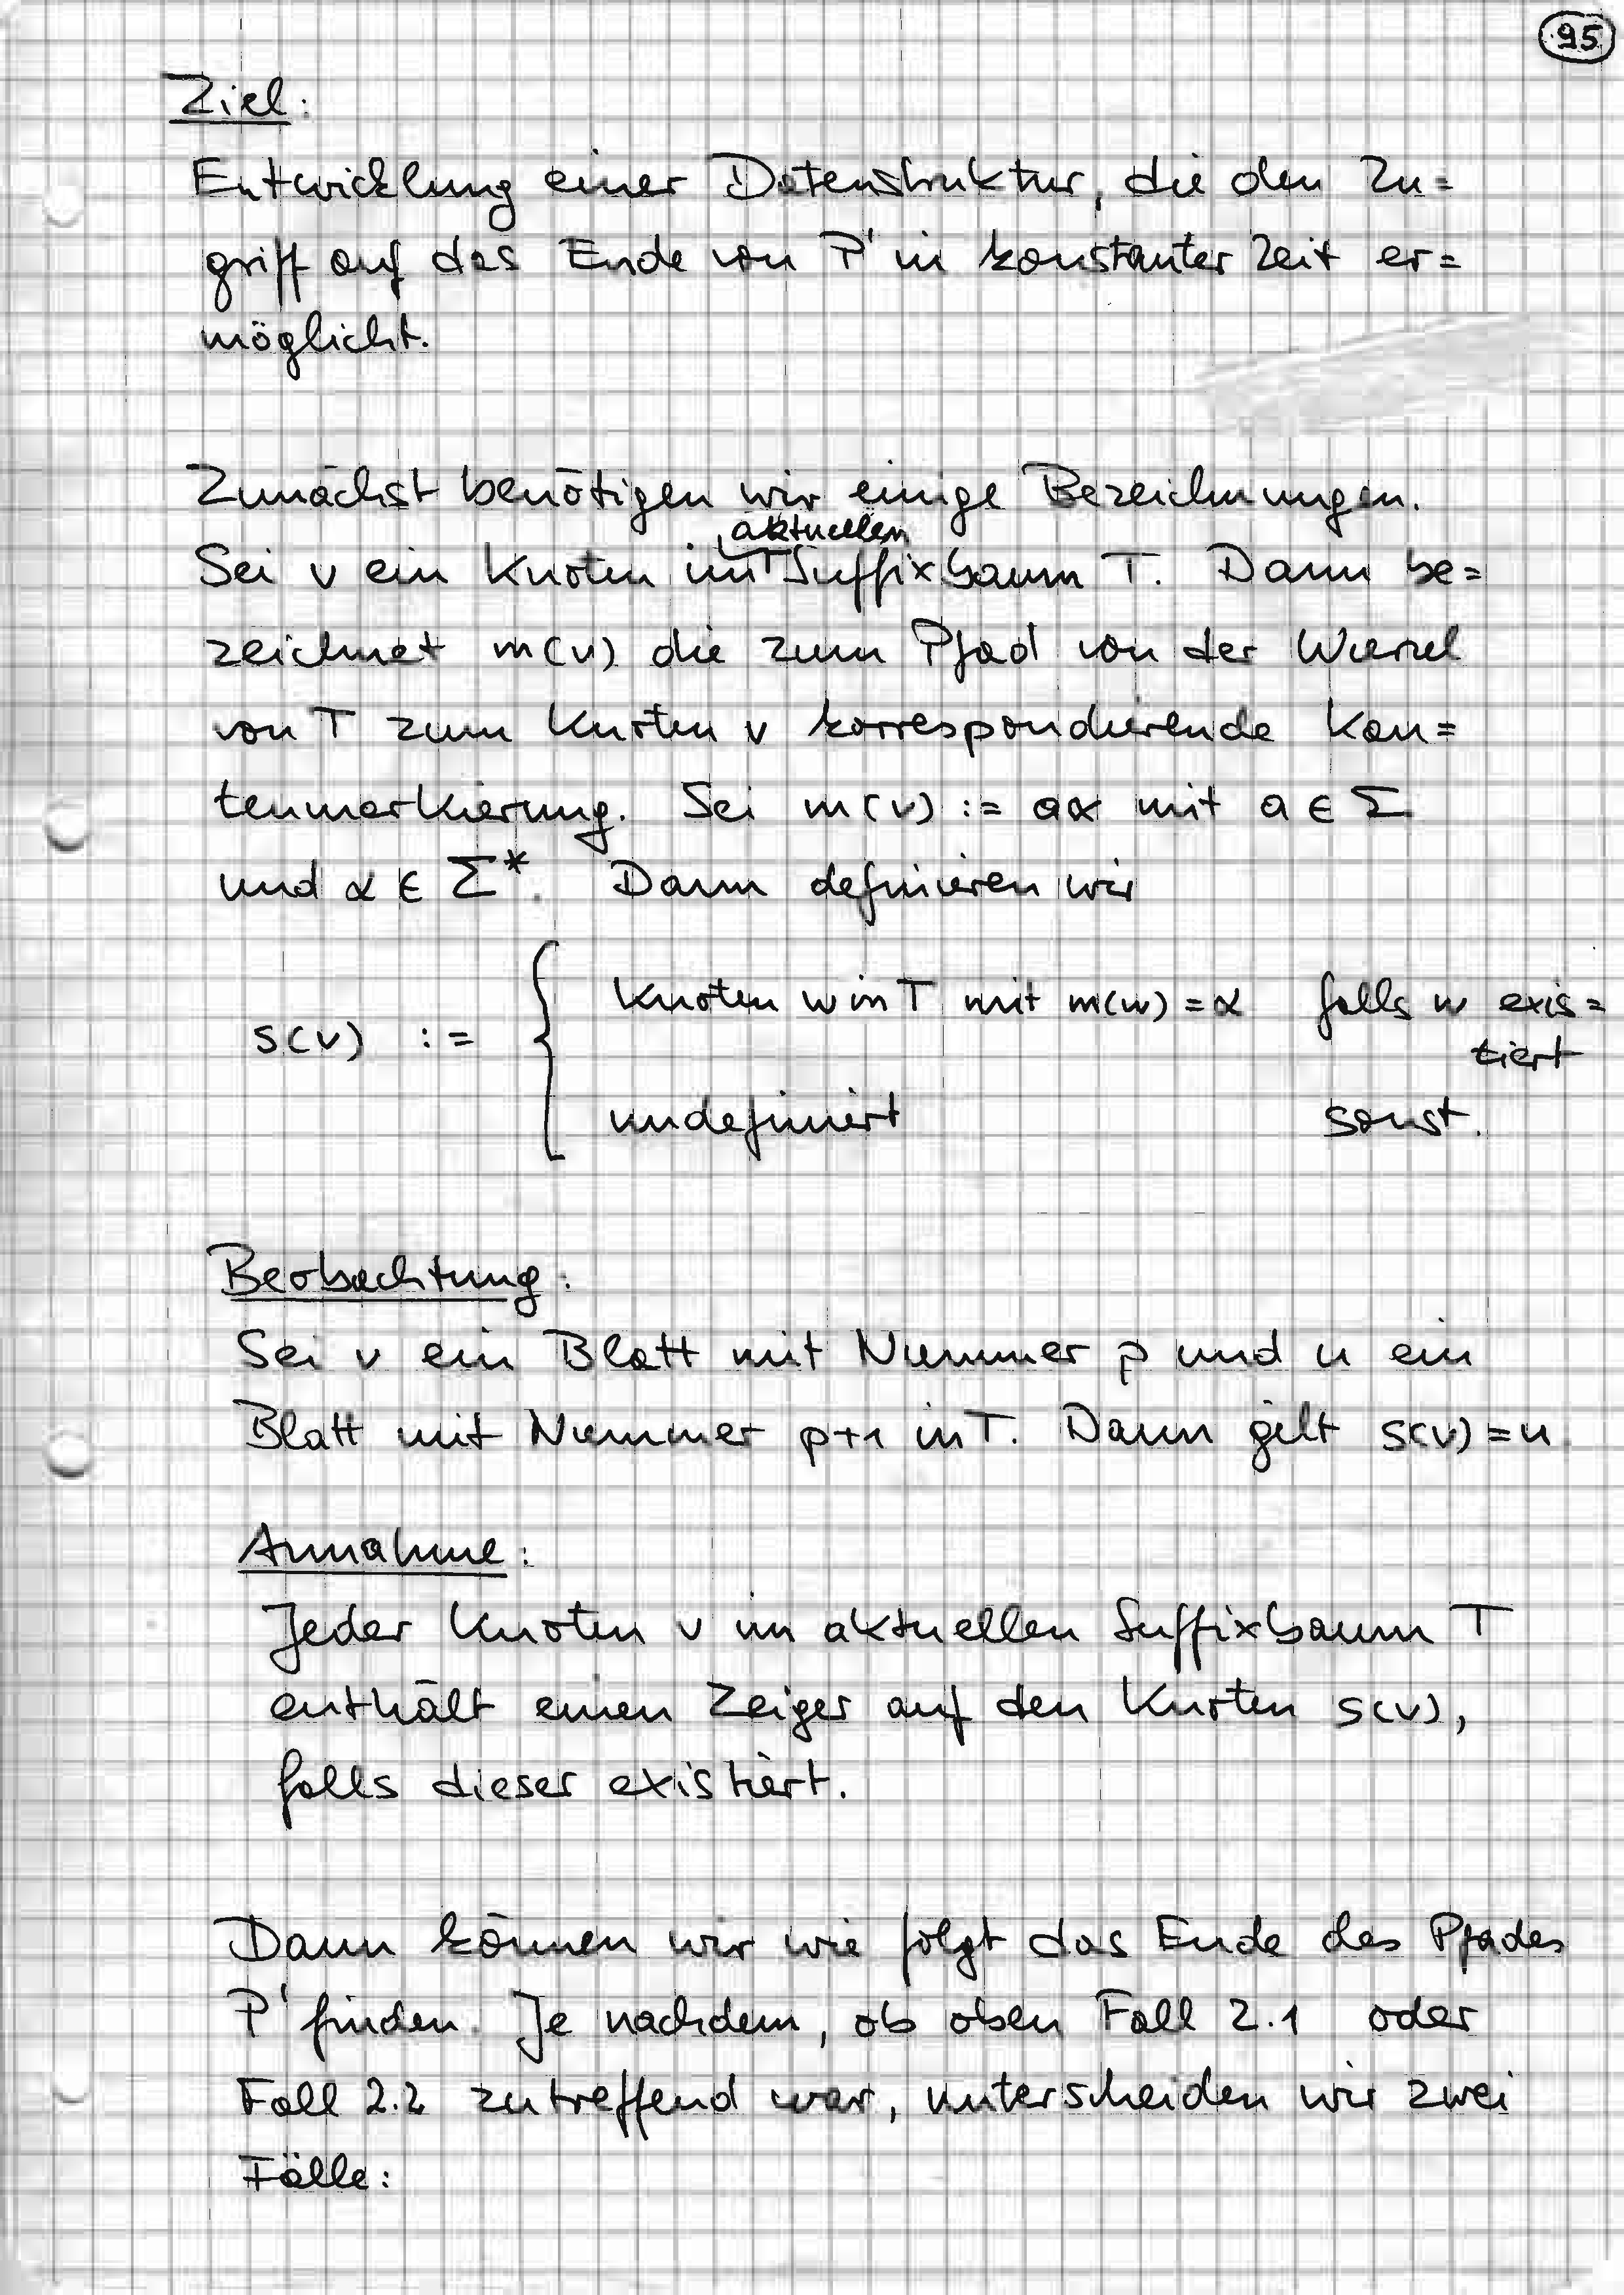 95
Ziel:
Entwicklung einer Datenstruktur, die den Zu=
griff auf das Ende von P' in konstanter Zeit er=
möglicht.
Zunächst benötigen wir einige Bezeichnungen.
aktuellen
Sei v ein Knoten im Suffixbaum T. Dann be=
zeichnet m(v) die zum Pfad von der Wurzel
von T zum Knoten v korrespondierende Kan=
tenmarkierung. Sei m(v) := aα mit a ∈ Σ
und α ∈ Σ*. Dann definieren wir
s(v) := { Knoten w in T mit m(w) = α falls w exis=
tiert
undefiniert sonst.
Beobachtung:
Sei v ein Blatt mit Nummer p und u ein
Blatt mit Nummer p+1 in T. Dann gilt s(v) = u.
Annahme:
Jeder Knoten v im aktuellen Suffixbaum T
enthält einen Zeiger auf den Knoten s(v),
falls dieser existiert.
Dann können wir wie folgt das Ende des Pfades
P' finden. Je nachdem, ob oben Fall 2.1 oder
Fall 2.2 zutreffend war, unterscheiden wir zwei
Fälle: